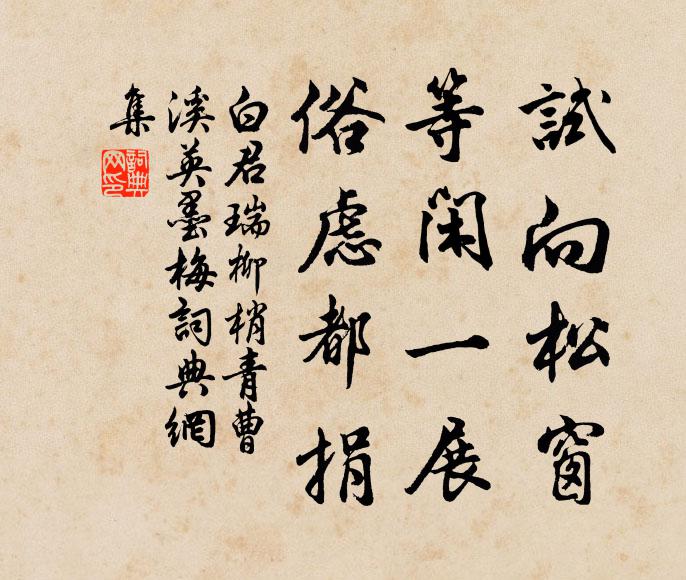 試向松窗
等閑一展
俗慮都捐
白君瑞柳梢青曹
溪英墨梅詞典網
集
詞典
网印